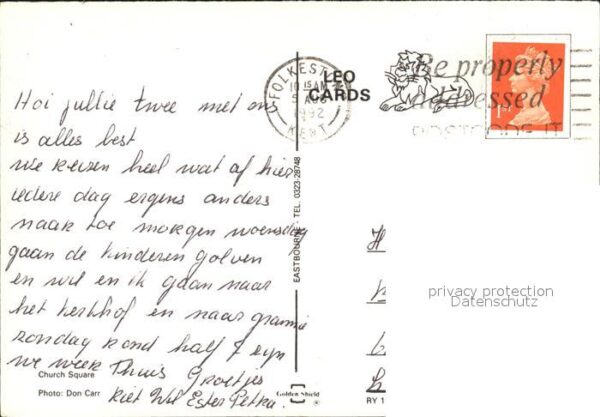 Hoi jullie twee met ons
is alles best
we reizen heel wat af hier
iedere dag ergens anders
naar toe morgen woensdag
gaan de kinderen golven
en wil en ik gaan naar
het kerkhof en naar grannie
zondag rond half 7 zijn
we weer Thuis Groetjes
Riet Wil Ester Petra.
Church Square
Photo: Don Carr
EASTBOURNE - TEL. 0323-28748
LEO
CARDS
FOLKESTONE
10 15 AM
AUG
1992
KENT
Be properly
addressed
POSTCODE IT
1ST
privacy protection
Datenschutz
Golden Shield
RY 1